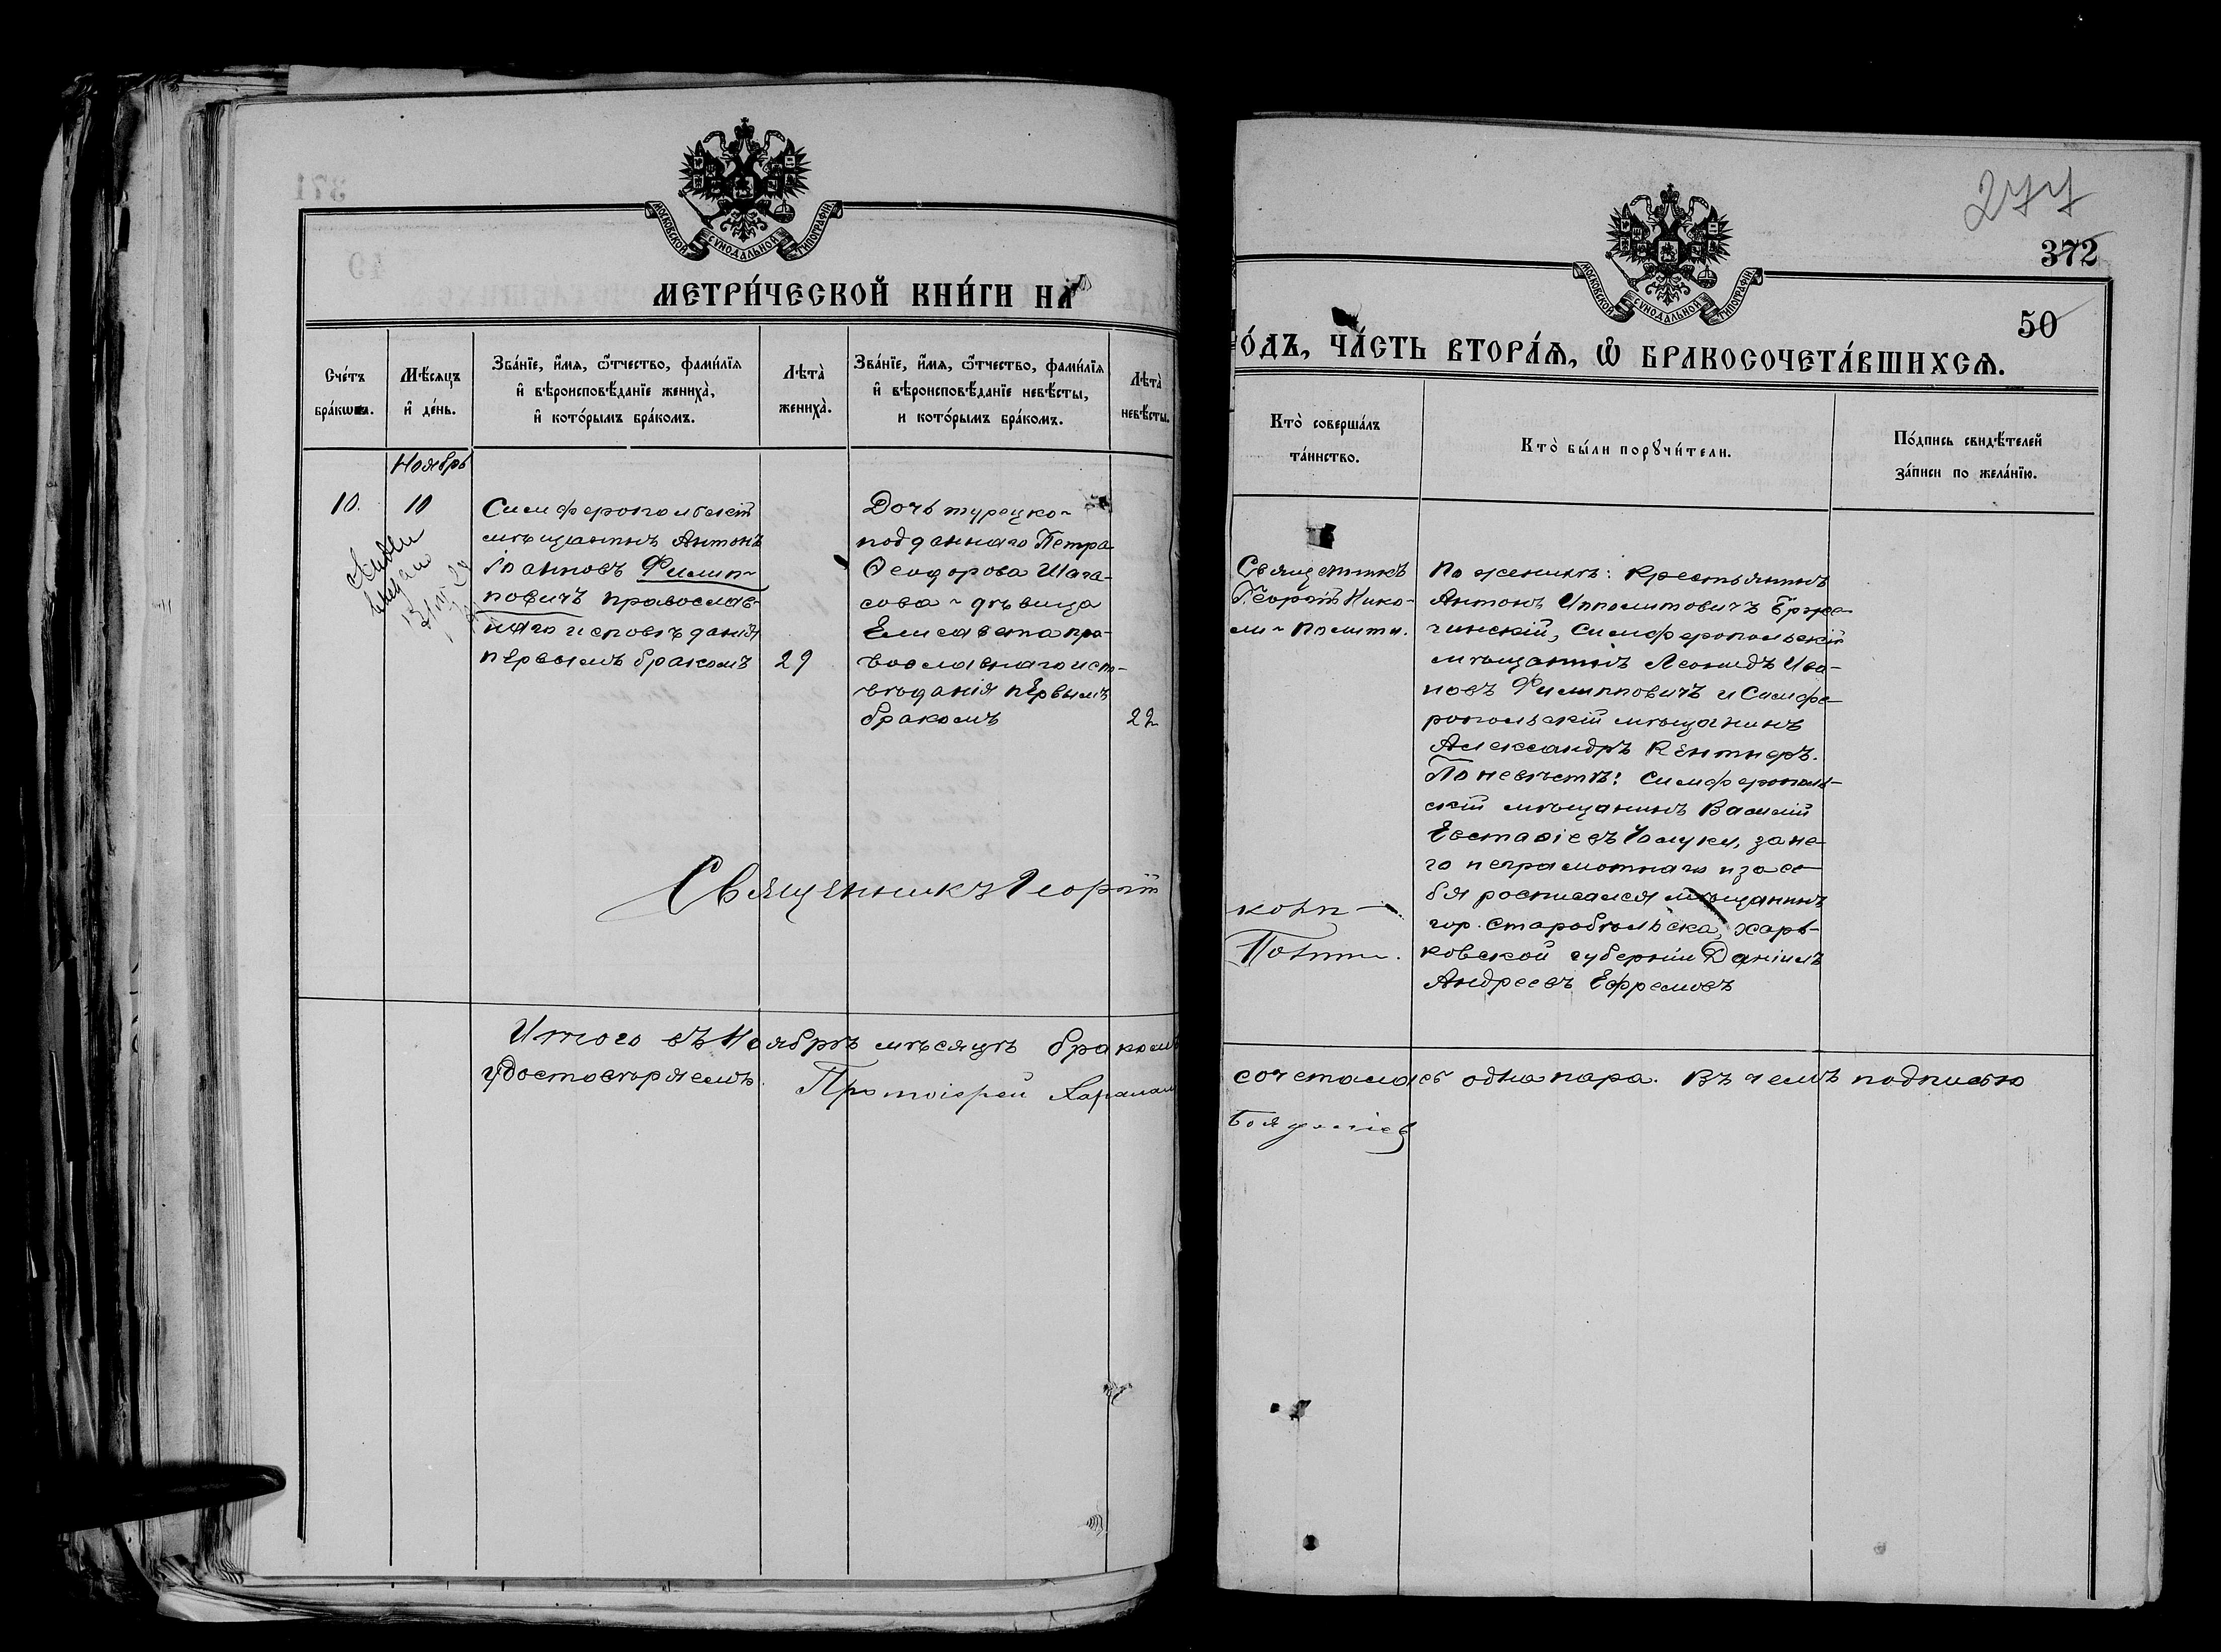 МОСКОВСКОЙ СѴНОДАЛЬНОЙ ТИПОГРАФІИ
МЕТРИ́ЧЕСКОЙ КНИ́ГИ НА
Сче́тъ бра́кѡвъ.
Мѣ́сяцъ и҆ де́нь.
Зва́нїе, и҆́мѧ, ѻ҆́тчество, фами́лїѧ и҆ вѣроисповѣ́данїе жениха̀, и҆ кото́рымъ бра́комъ.
Лѣта̀ жениха̀.
Зва́нїе, и҆́мѧ, ѻ҆́тчество, фами́лїѧ и҆ вѣроисповѣ́данїе невѣ́сты, и кото́рымъ бра́комъ.
Лѣта̀ невѣ́сты.
Ноябрь
10.
10
Симферопольскій
мѣщанинъ Антонъ
Іоанновъ Филип-
повичъ православ-
наго исповѣданія
первымъ бракомъ
29
Дочь турецко-
подданнаго Петра
Ѳеодорова Шага-
сова - дѣвица
Елисавета пра-
вославнаго исп-
вѣданія первымъ
бракомъ
22
Священникъ Георгій
Итого въ Ноябрѣ мѣсяцѣ бракомъ
удостовѣряемъ. Протоіерей Харалам
277
372
МОСКОВСКОЙ СѴНОДАЛЬНОЙ ТИПОГРАФІИ
50
ГО́ДЪ, ЧА́СТЬ ВТОРА́Ѧ, Ѡ҆ БРАКОСОЧЕТА́ВШИХСѦ.
Кто̀ соверша́лъ та́инство.
Кто̀ бы́ли порꙋчи́тели.
По́дпись свидѣ́телей за́писи по жела́нїю.
Священникъ
Георгій Нико-
ли - Полити.
По женихѣ: крестьянинъ
Антонъ Ипполитовичъ Ержа-
чинскій, Симферопольскій
мѣщанинъ Леонидъ Ива-
новъ Филипповичъ и Симфе-
ропольскій мѣщанинъ
Александръ Кентнеръ.
По невѣстѣ: Симферополь-
скій мѣщанинъ Василій
Евстаѳіевъ за не-
го неграмотнаго и за се-
бя росписался мѣщанинъ
гор. Старобѣльска, Харь-
ковской губерніи Даніилъ
Андреевъ Ефремовъ
сочеталась одна пара. Въ чемъ подписью